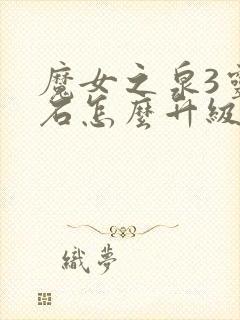 魔女之泉3靈
石怎麼升級
織夢